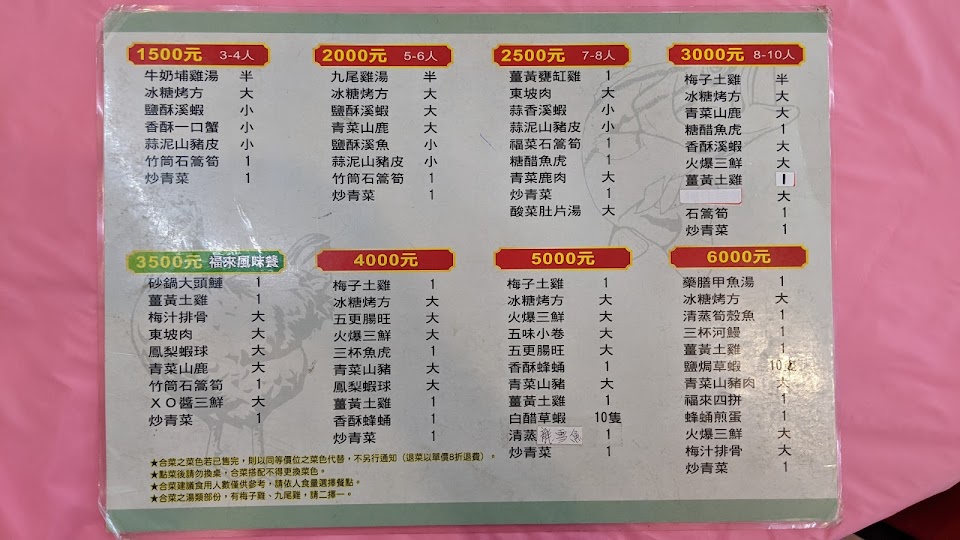 1500元 3-4人
牛奶埔雞湯 半
冰糖烤方 大
鹽酥溪蝦 小
香酥一口蟹 小
蒜泥山豬皮 小
竹筒石篙筍 1
炒青菜 1
2000元 5-6人
九尾雞湯 半
冰糖烤方 大
鹽酥溪蝦 大
青菜山鹿 大
鹽酥溪魚 小
蒜泥山豬皮 小
竹筒石篙筍 1
炒青菜 1
2500元 7-8人
薑黃甕缸雞 1
東坡肉 大
蒜香溪蝦 小
蒜泥山豬皮 小
福菜石篙筍 1
糖醋魚虎 1
青菜鹿肉 大
炒青菜 1
酸菜肚片湯 大
3000元 8-10人
梅子土雞 半
冰糖烤方 大
青菜山鹿 大
糖醋魚虎 1
香酥溪蝦 大
火爆三鮮 大
薑黃土雞 1
大
石篙筍 1
炒青菜 1
3500元 福來風味餐
砂鍋大頭鰱 1
薑黃土雞 1
梅汁排骨 大
東坡肉 大
鳳梨蝦球 大
青菜山鹿 大
竹筒石篙筍 1
XO醬三鮮 大
炒青菜 1
4000元
梅子土雞 1
冰糖烤方 大
五更腸旺 大
火爆三鮮 大
三杯魚虎 1
青菜山豬 大
鳳梨蝦球 大
薑黃土雞 1
香酥蜂蛹 1
炒青菜 1
5000元
梅子土雞 1
冰糖烤方 大
火爆三鮮 大
五味小卷 大
五更腸旺 大
香酥蜂蛹 1
青菜山豬 大
薑黃土雞 1
白醋草蝦 10隻
清蒸 1
炒青菜 1
6000元
藥膳甲魚湯 1
冰糖烤方 大
清蒸筍殼魚 1
三杯河鰻 1
薑黃土雞 1
鹽焗草蝦 10隻
青菜山豬肉 大
福來四拼 1
蜂蛹煎蛋 1
火爆三鮮 大
梅汁排骨 大
炒青菜 1
★合菜之菜色若已售完，則以同等價位之菜色代替，不另行通知（退菜以單價8折退費）。
★點菜後請勿換桌，合菜搭配不得更換菜色。
★合菜建議食用人數僅供參考，請依人食量選擇餐點。
★合菜之湯類部份，有梅子雞、九尾雞，請二擇一。